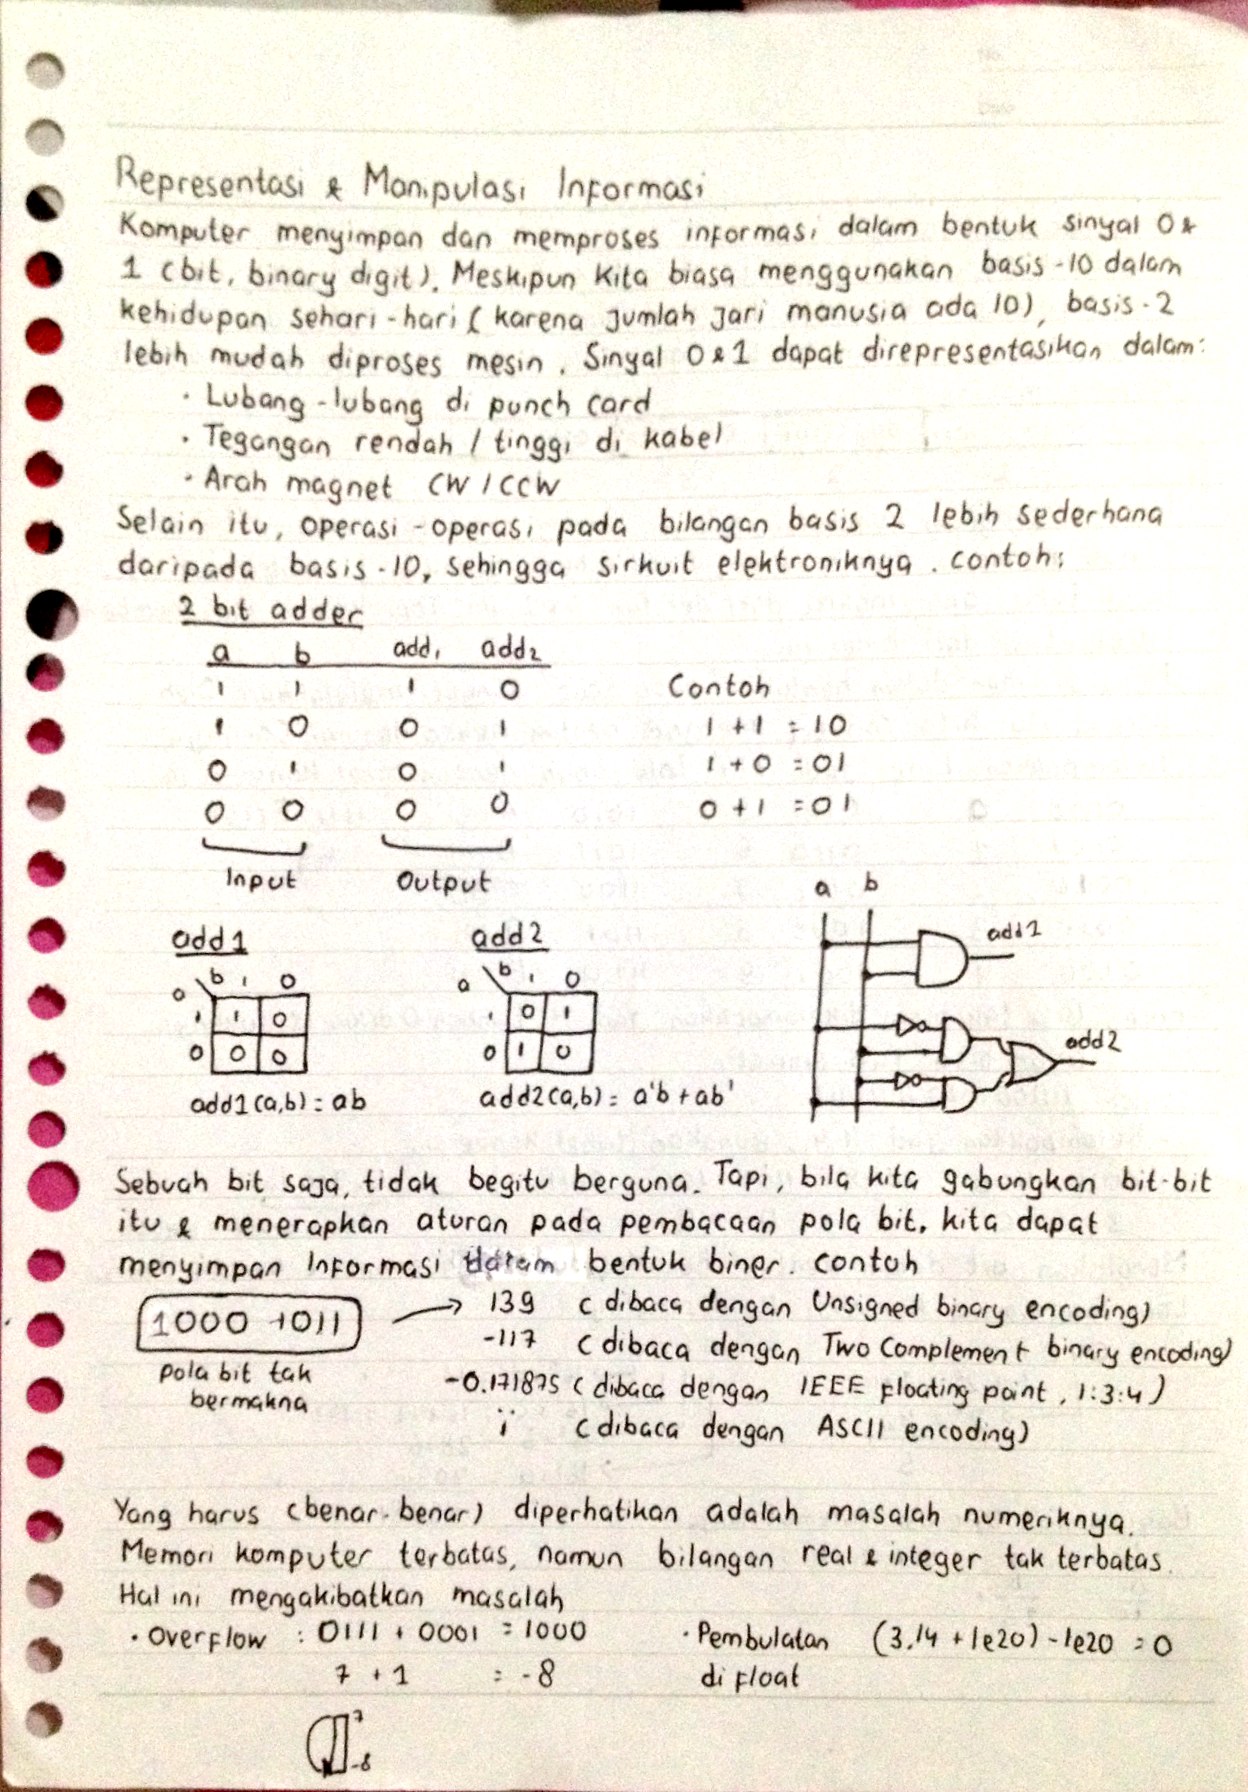 Representasi & Manipulasi Informasi
Komputer menyimpan dan memproses informasi dalam bentuk sinyal 0 &
1 (bit, binary digit). Meskipun kita biasa menggunakan basis-10 dalam
kehidupan sehari-hari (karena jumlah jari manusia ada 10), basis-2
lebih mudah diproses mesin. Sinyal 0 & 1 dapat direpresentasikan dalam:
· Lubang-lubang di punch card
· Tegangan rendah / tinggi di kabel
· Arah magnet CW / CCW
Selain itu, operasi-operasi pada bilangan basis 2 lebih sederhana
daripada basis-10, sehingga sirkuit elektroniknya. contoh:
2 bit adder
a b add1 add2
1 1 1 0 Contoh
1 0 0 1 1 + 1 = 10
0 1 0 1 1 + 0 = 01
0 0 0 0 0 + 1 = 01
Input Output
a b
add1 add2 add1
b 1 0 b 1 0
a a
1 1 0 1 0 1
0 0 0 0 1 0 add2
add1(a,b) = ab add2(a,b) = a'b + ab'
Sebuah bit saja, tidak begitu berguna. Tapi, bila kita gabungkan bit-bit
itu & menerapkan aturan pada pembacaan pola bit, kita dapat
menyimpan Informasi dalam bentuk biner. contoh
1000 1011 → 139 (dibaca dengan Unsigned binary encoding)
-117 (dibaca dengan Two Complement binary encoding)
pola bit tak
bermakna
-0.171875 (dibaca dengan IEEE floating point, 1:3:4)
ï (dibaca dengan ASCII encoding)
Yang harus (benar-benar) diperhatikan adalah masalah numeriknya.
Memori komputer terbatas, namun bilangan real & integer tak terbatas.
Hal ini mengakibatkan masalah
· Overflow : 0111 + 0001 = 1000 · Pembulatan (3.14 + 1e20) - 1e20 = 0
7 + 1 = -8 di float
7
-8